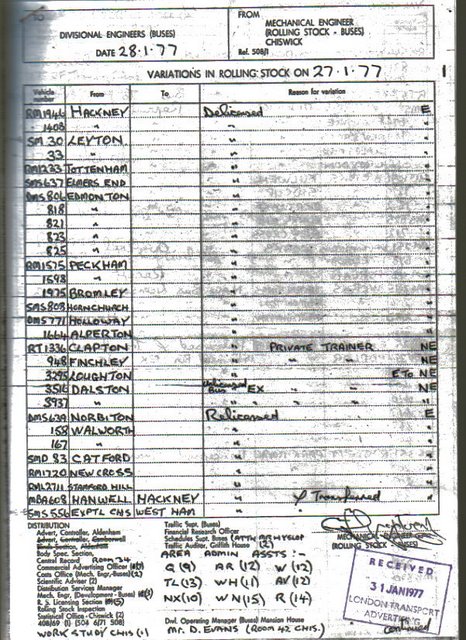 TO
FROM
DIVISIONAL ENGINEERS (BUSES)
MECHANICAL ENGINEER
(ROLLING STOCK - BUSES)
CHISWICK
DATE 28·1·77
Ref. 508/1
VARIATIONS IN ROLLING STOCK ON 27·1·77
Vehicle number From To Reason for variation
RM1946 HACKNEY Delicensed E
1403 " "
SM 30 LEYTON "
33 " "
RM1233 TOTTENHAM "
SMS637 ELMERS END "
DMS806 EDMONTON "
818 " "
821 " "
823 " "
825 " "
RM1575 PECKHAM "
1598 " "
1975 BROMLEY "
SMS803 HORNCHURCH "
DMS771 HOLLOWAY "
1664 ALPERTON "
RT1336 CLAPTON " PRIVATE TRAINER NE
948 FINCHLEY " " " NE
3295 LOUGHTON " E To NE
3516 DALSTON Delicensed Bus EX " " NE
3937 " "
DMS639 NORBITON Relicensed E
158 WALWORTH "
167 " "
SMD 83 CATFORD "
RM1720 NEW CROSS "
RML2711 STAMFORD HILL "
MBA608 HANWELL HACKNEY " & Transferred
SMS556 EXPTL CHS WEST HAM "
DISTRIBUTION
Advert, Controller, Aldenham
Body Supr. Section
Central Record ROOM 34
Commercial Advertising Officer
Costs Office (Mech. Engr.-Buses)(2)
Scientific Adviser (2)
Distribution Services Manager
Mech. Engr. (Development - Buses)
R. S. Licensing Section
Rolling Stock Inspection
Statistical Office - Chiswick (2)
WORK STUDY CHIS (1)
Traffic Supt. (Buses)
Financial Research Officer
Schedules Supt. (Buses)
Traffic Auditor, Griffith House (2)
AREA ADMIN ASSTS:-
Q (9) AR (12) W (12)
TL (13) WH (11) AV (12)
NX (10) WN (15) R (14)
Divl. Operating Manager (Buses) Mansion House
MR. D. EVANS (ROOM 43 CHIS.)
MECHANICAL ENGINEER
(ROLLING STOCK - BUSES)
RECEIVED
31 JAN 1977
LONDON TRANSPORT
ADVERTISING
continued